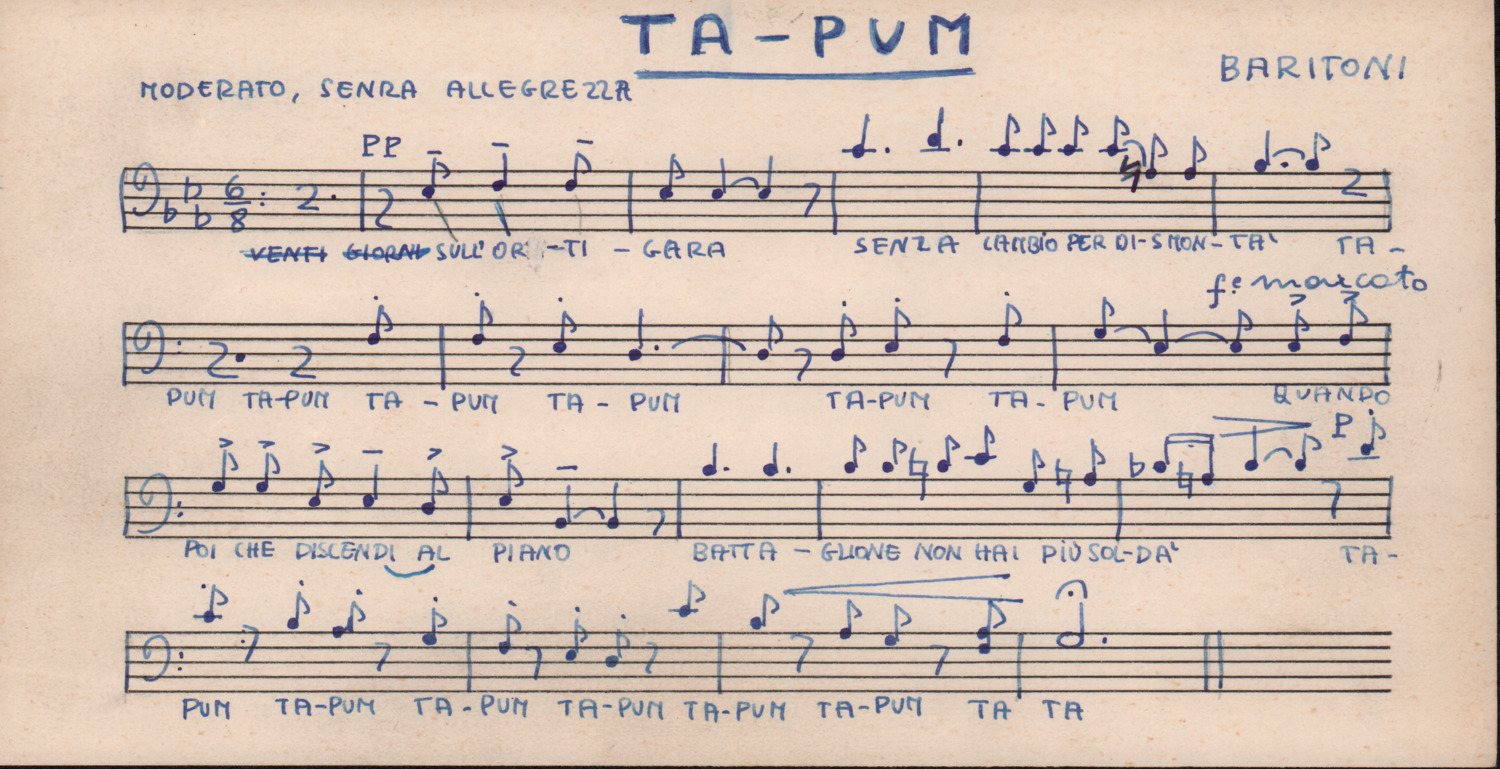 TA-PUM
BARITONI
MODERATO, SENZA ALLEGREZZA
PP
6
8
VENTI GIORNI SULL' OR-TI-GARA SENZA CAMBIO PER DI-SMON-TA' TA-
fe marcato
PUM TA-PUM TA-PUM TA-PUM TA-PUM TA-PUM QUANDO
P
POI CHE DISCENDI AL PIANO BATTA-GLIONE NON HAI PIÙ SOL-DA' TA-
PUM TA-PUM TA-PUM TA-PUM TA-PUM TA-PUM TA TA